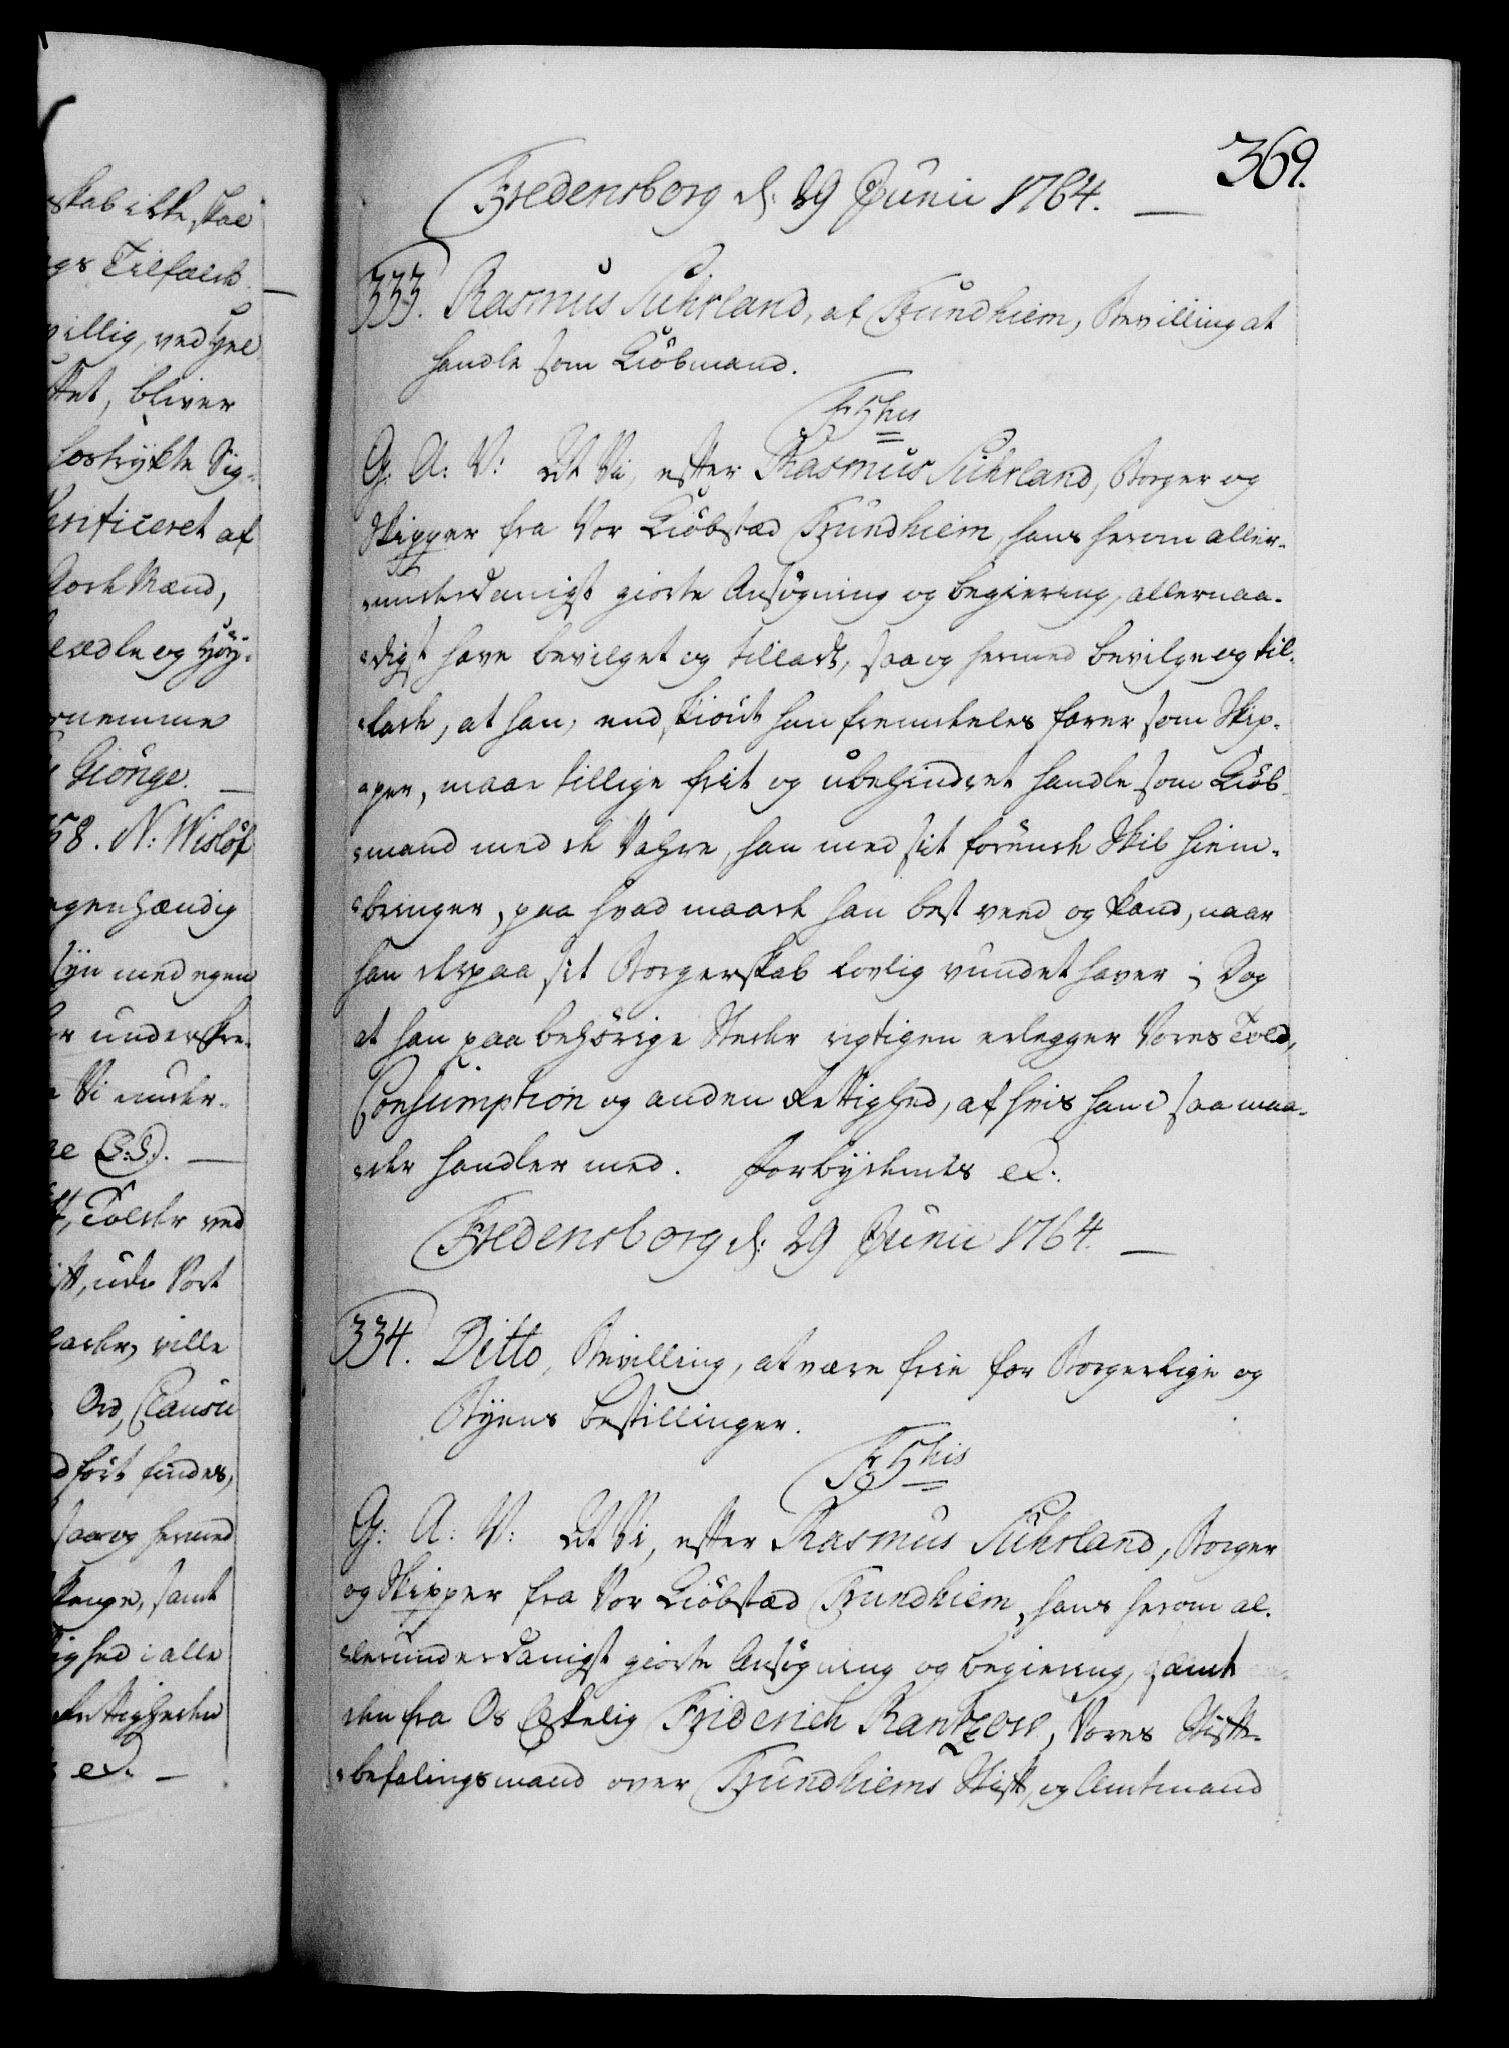 skab ikke skal
gs Tilfælde. —
villig, ved Hel
ket, bliver
hostrykte Sig-
Verificeret af
Gode Mænd,
ledle og Høy-
rnemme
Giönge. —
58. N: Wislöf
egenhændig
syn med egen
er underskre-
Vi under-
ne (L:S.). —
Tolder ved
ift, udi Vort
lader, ville
Ord, Clausu
d fört findes,
saa og hermed
lenge, samt
lighed i alle
Rettigheder
et. —
369.
Fredensborg d: 29 Junii 1764. —
333. Rasmus Suhrland, af Trundhiem, Bevilling at
handle som Kiöbmand.
Fr: 5this
G: A: V: At Vi, efter Rasmus Suhrland, Borger og
Skipper fra Vor Kiöbstæd Trundhiem, hans herom aller-
underdanigst giorte Ansögning og begiering, allernaa-
digst have bevilget og tilladt, saa og hermed bevilge og til-
lade, at han, endskiönt han fremdeles farer som Skip-
per, maae tillige frit og ubehindret handle som Kiöb-
mand med de Vahre, han med sit förende Skib hiem-
bringer, paa hvad maade han best veed og kand, naar
han derpaa sit Borgerskab lovlig vundet haver; Dog
at han paa behörige Steder rigtigen erlegger Vores Told,
Consumption og anden Rettighed, af hvis hand saa maa-
der handler med. Forbydendes et.
Fredensborg d: 29 Junii 1764. —
334. Ditto, Bevilling, at være frie for Borgerlige og
Byens bestillinger.
Fr 5this
G: A: V: At Vi, efter Rasmus Suhrland, Borger
og Skipper fra Vor Kiöbstæd Trundhiem, hans herom al-
lerunderdanigst giorte Ansögning og begiering, samt
den fra Os Elskelig Friderich Rantzow, Vores Stift-
befalingsmand over Trundhiems Stift, og Amtmand